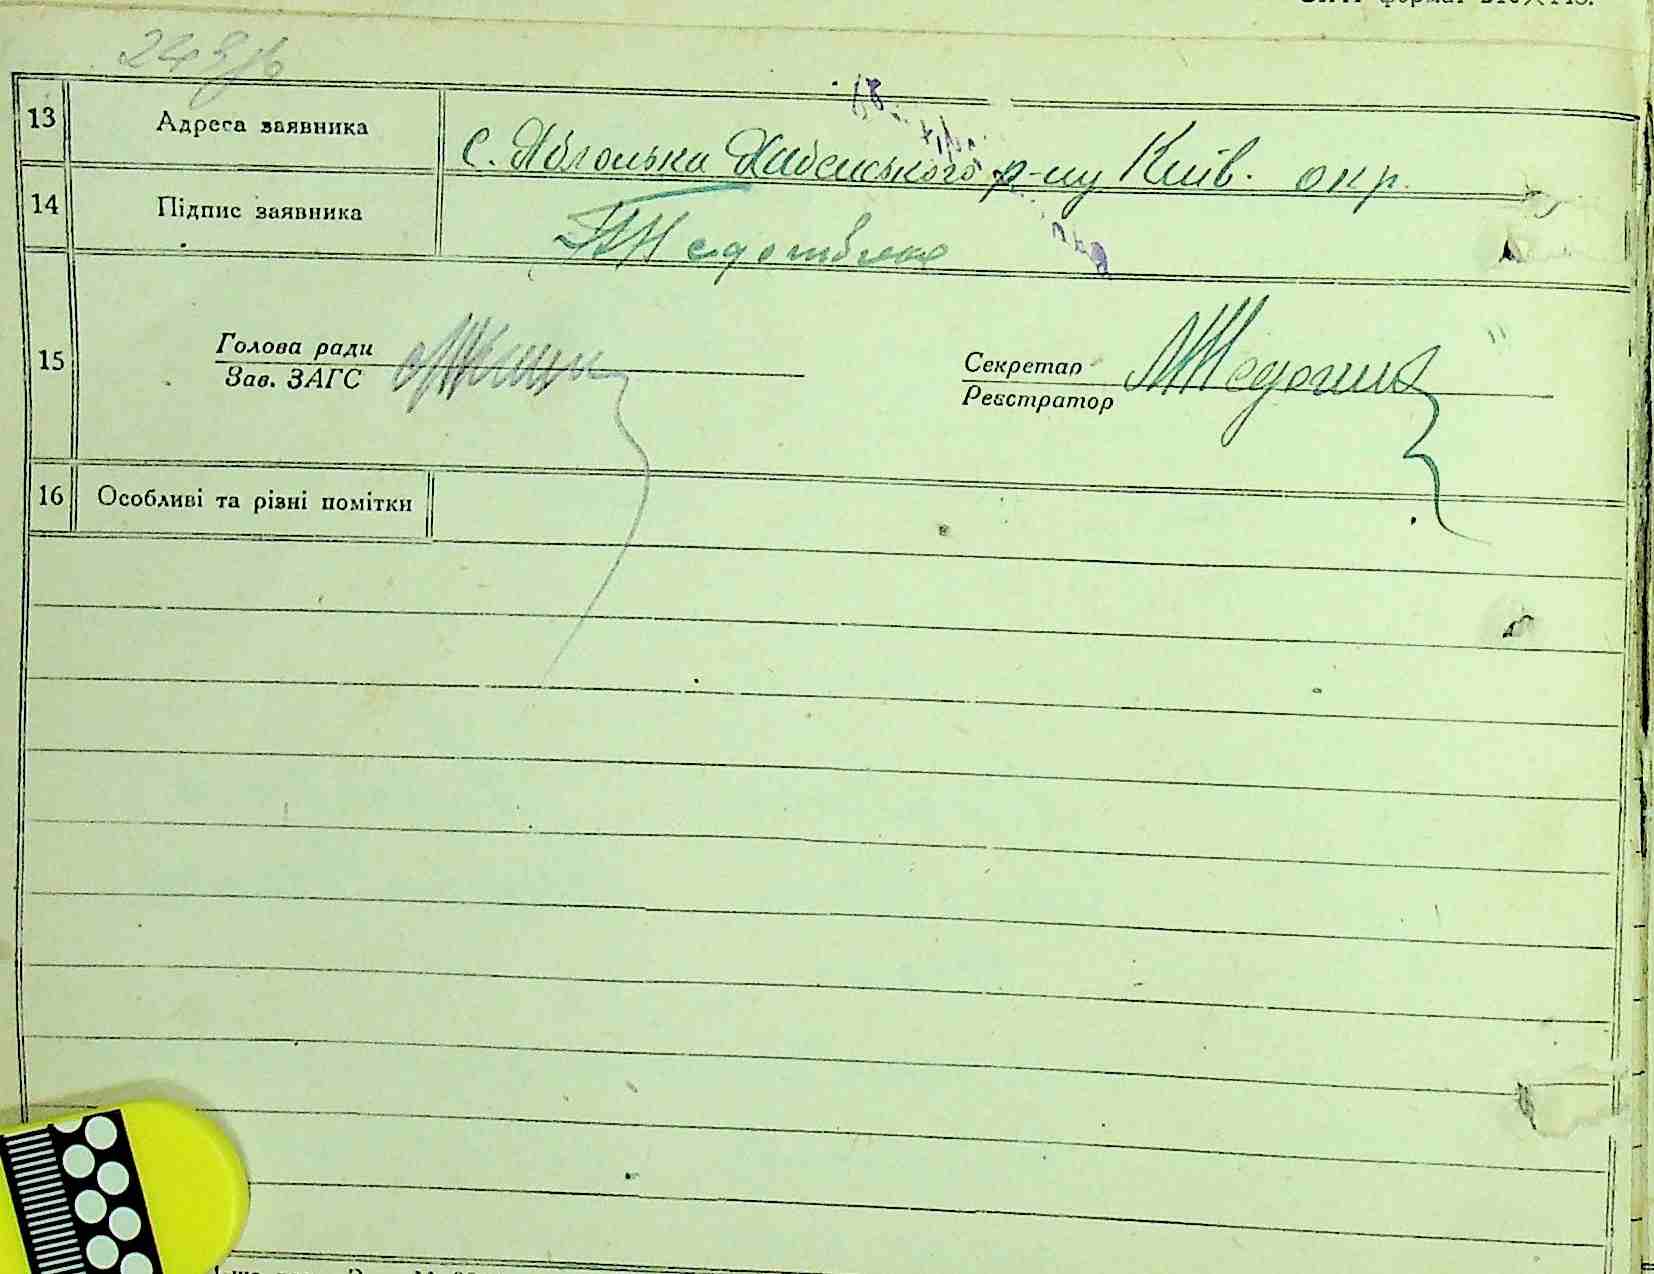 24 зв
13 Адреса заявника с. Яблонька Хабенського р-ну Київ. окр.
14 Підпис заявника
15 Голова ради
Зав. ЗАГС
Секретар
Реєстратор
16 Особливі та різні помітки